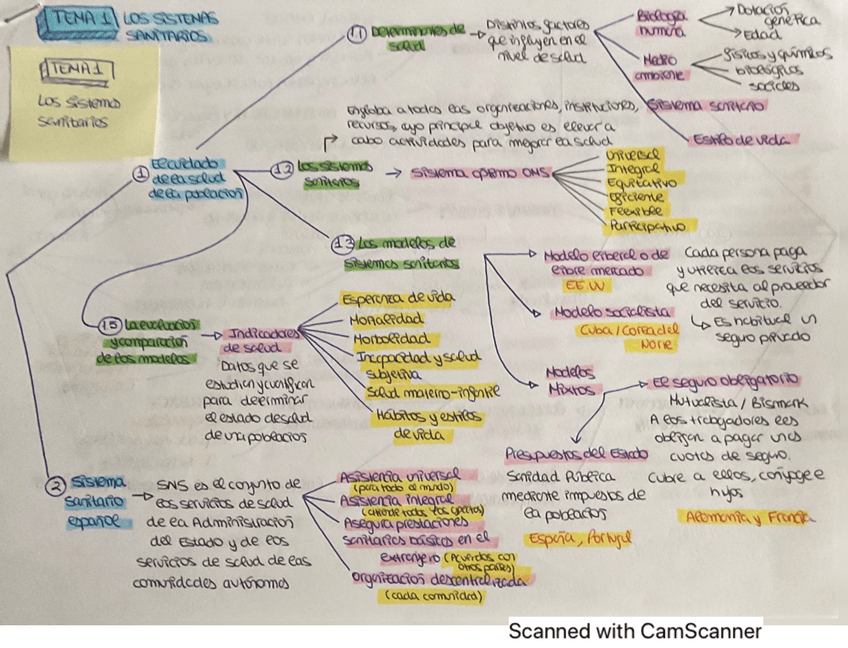 TEMA 1 LOS SISTEMAS
SANITARIOS
TEMA 1
Los Sistemas
sanitarios
1 El cuidado
de la salud
de la población
1.1 Determinantes de
salud
Distintos factores
que influyen en el
nivel de salud
Biología
humana
Dotación
genética
Edad
Medio
ambiente
físicos y químicos
biológicos
sociales
Sistema sanitario
Estilo de vida
Engloba a todas las organizaciones, instituciones,
recursos, cuyo principal objetivo es llevar a
cabo actividades para mejorar la salud
1.2 Los sistemas
sanitarios
Sistema óptimo OMS
Universal
Integral
Equitativo
Eficiente
Flexible
Participativo
1.3 Los modelos de
sistemas sanitarios
Modelo liberal o de
libre mercado
EE UU
Cada persona paga
y utiliza los servicios
que necesita al proveedor
del servicio.
Es habitual un
seguro privado
Modelo socialista
Cuba / Corea del
Norte
Modelos
Mixtos
El seguro obligatorio
Mutualista / Bismark
A los trabajadores les
obligan a pagar unas
cuotas de seguro.
Cubre a ellos, conyuge e
hijos
Alemania y Francia
Presupuestos del Estado
Sanidad Pública
mediante impuestos de
la población
España, Portugal
1.5 La evaluación
y comparación
de los modelos
Indicadores
de salud
Datos que se
estudian y analizan
para determinar
el estado de salud
de una población
Esperanza de vida
Mortalidad
Morbolidad
Incapacidad y salud
subjetiva
Salud materno-infantil
Hábitos y estilos
de vida
2 Sistema
sanitario
español
SNS es el conjunto de
los servicios de salud
de la Administración
del Estado y de los
servicios de salud de las
comunidades autónomas
Asistencia universal
(para todo el mundo)
Asistencia integral
Asegura prestaciones
sanitarias básicas en el
extranjero (Acuerdos con
otros países)
Organización descentralizada
(cada comunidad)
Scanned with CamScanner